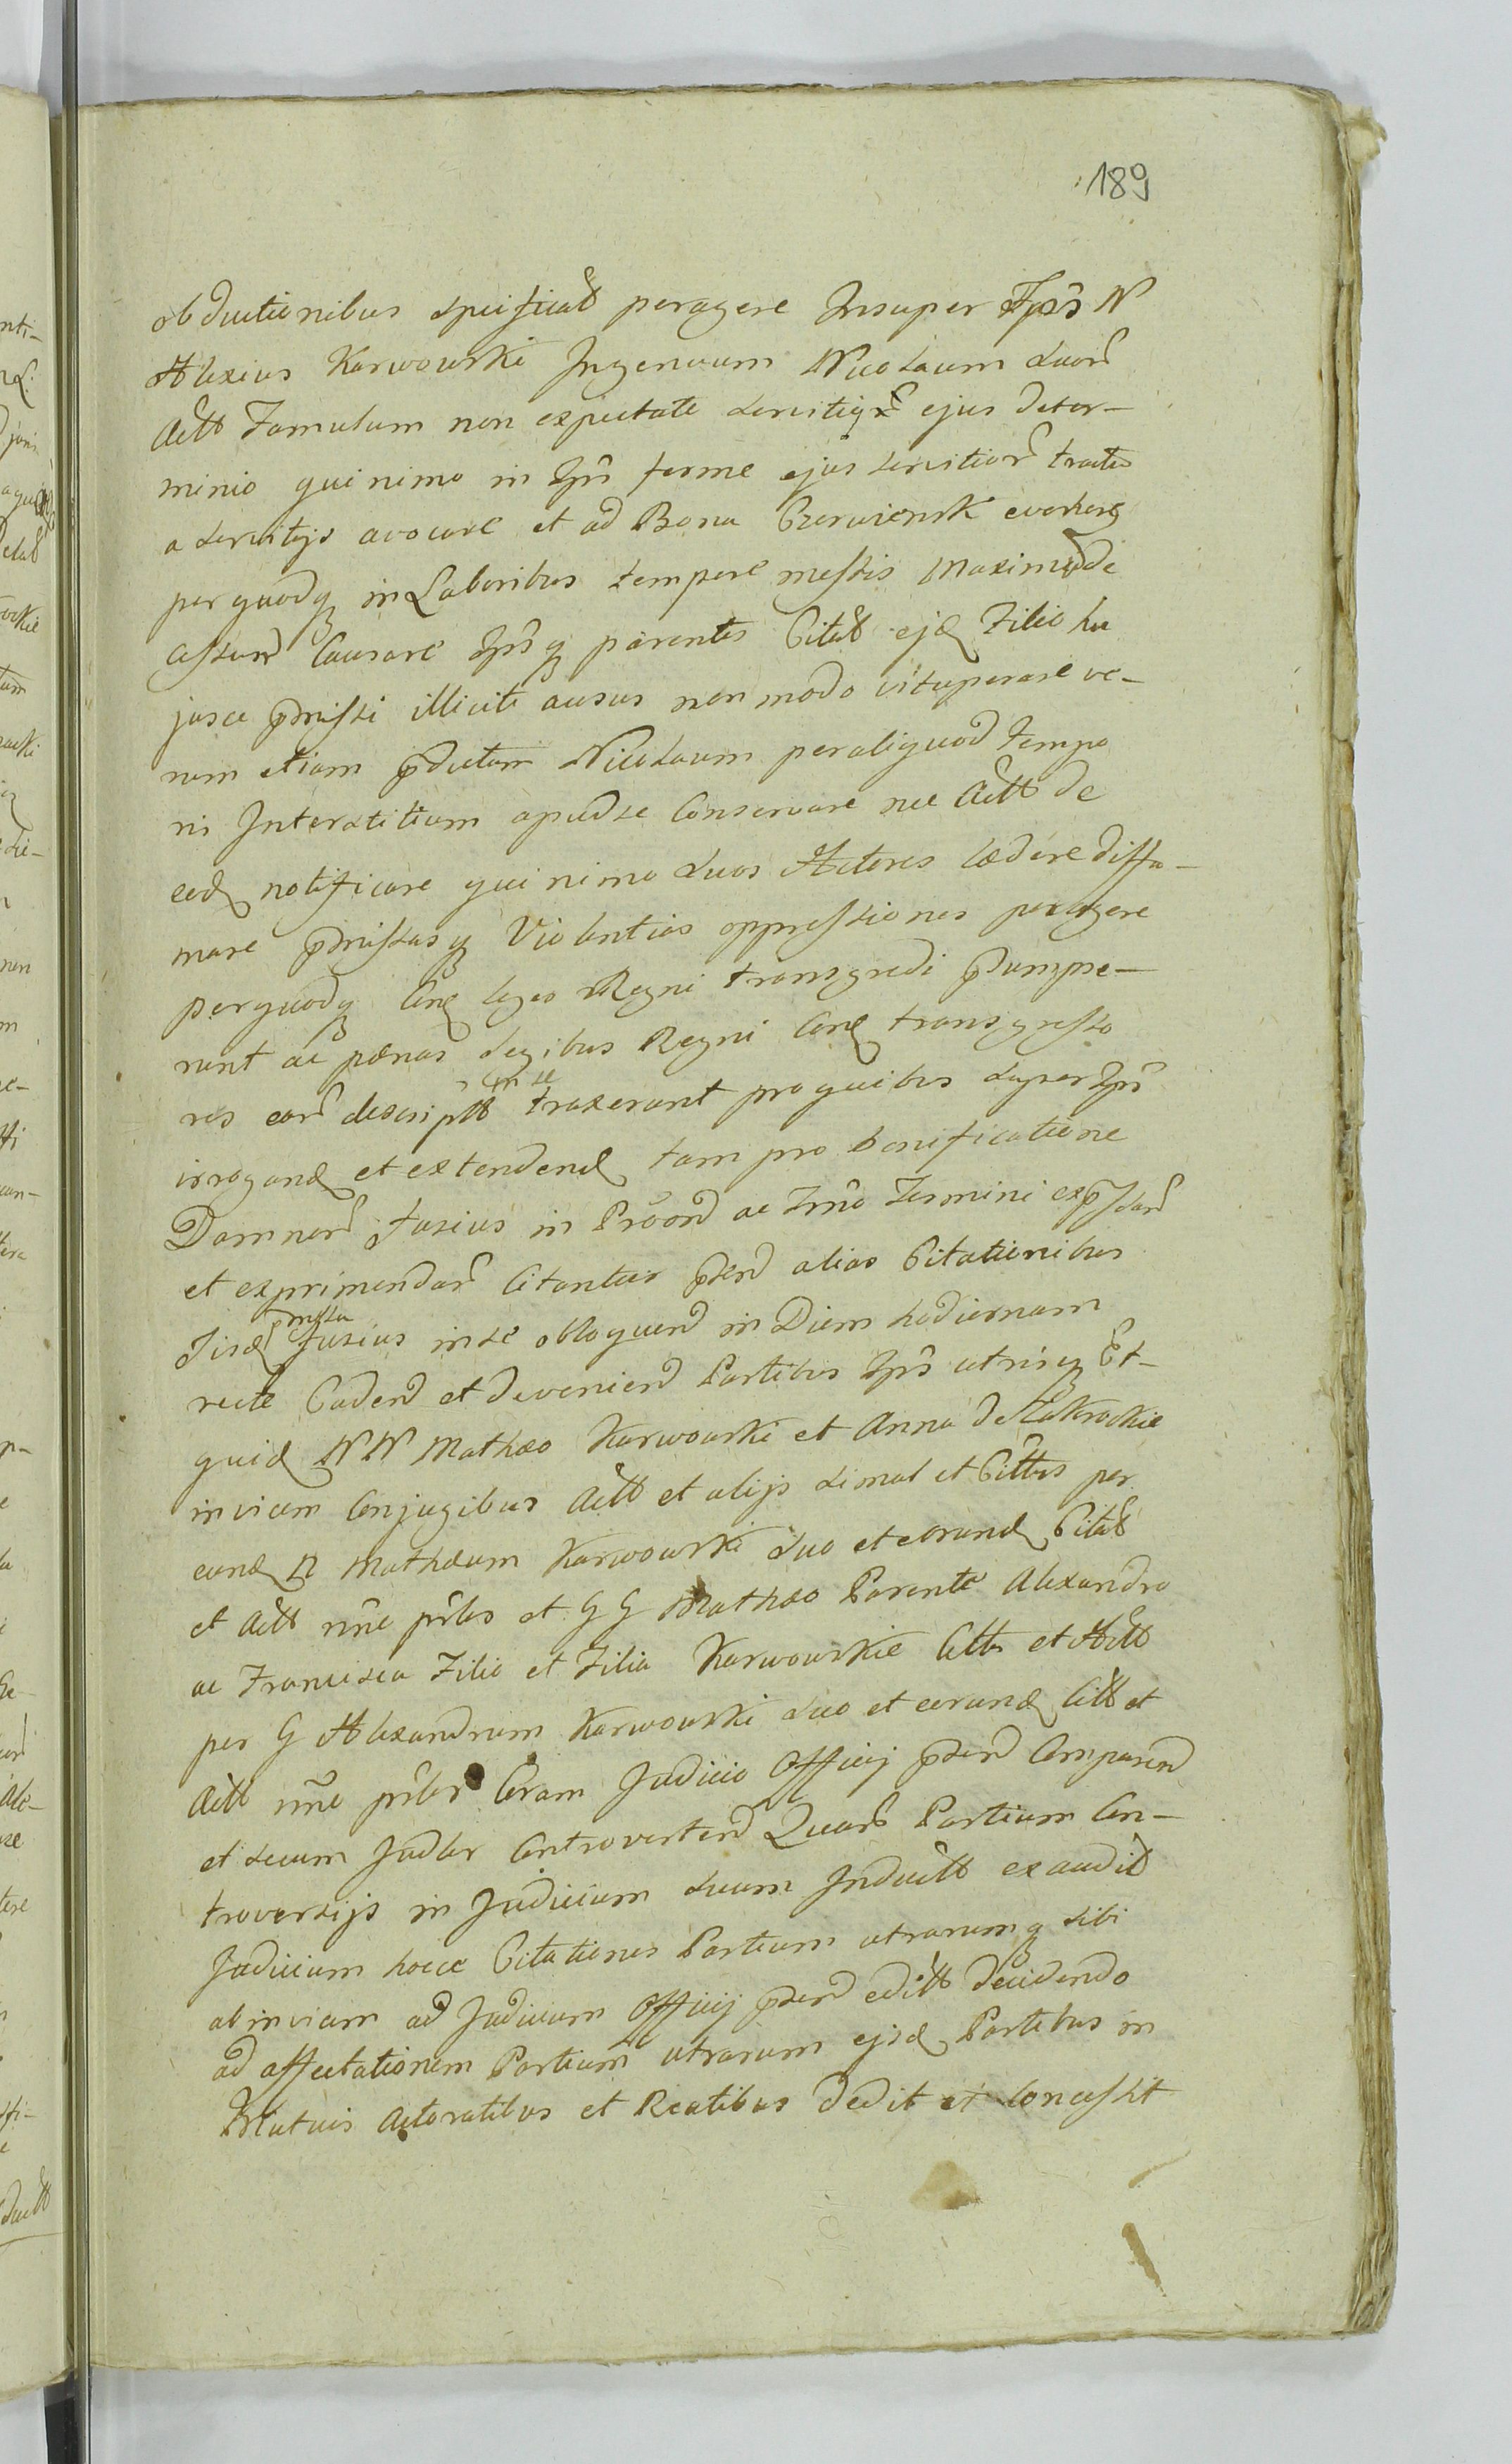 189
obductionibus specificat peragere Insuper Ipse N
Alexius Karwowski Ingenuum Nicolaum suor
Actt Famulum non expectato servitijr ejus deter-
minio quinimo in Ipso ferme ejus servitior tractu
a servitijs avocare et ad Bona Czerwiensk evehere
per quodq in Laboribus tempore messis maximu de
cessum Causare Ipsq parentes Citat ejd Filio hu
jusce pmissi illicite ausus non modo vituperare ve-
rum etiam pdictum Nicolaum peraliquod tempo
ris Interstitium apud se Conservare nec Actt de
eod notificare quinimo suos Actores lædere diffa-
mare pmissasq Violentias oppressiones peragere
perquodq Cong leges Regni transgredi psumpse-
runt ac pænas Legibus Regni Cong transgresso
res ear descriptt in se traxerunt pro quibus super Ips
irrogand et extendend tam pro bonificatione
Damnor fusius in Proond ac Trno Termini expssar
et exprimendar Citantur psend alias Citationibus
Iisd pmissa fusius in se obloquend in Diem hodiernam
recte Cadend et deveniend Partibus Ips utrisq Et-
quid NN Mathæo Karwowski et Anna de Zakrockie
invicem Conjugibus Actt et alijs simul et Cittis per
eund N Mathæum Karwowski suo et eorund Citat
et Actt nne prtes et GG Mathæo Parente Alexandro
ac Francisca Filio et Filia Karwowskie Citts et Actt
per G Alexandrum Karwowski suo et eorund Citt et
Actt nne prtes Coram Judicio Officij psend Comparend
et secum Judlr Controvertend Quar Partium Con-
troversijs in Judicium suum Inductt exaudit
Judicium hocce Citationes Partium utrarumq sibi
ab invicem ad Judicium Officij psend editt decidendo
ad affectationem Partium utrarum ejsd Partibus in
Mutuis Actoratibus et Reatibus dedit et Concessit